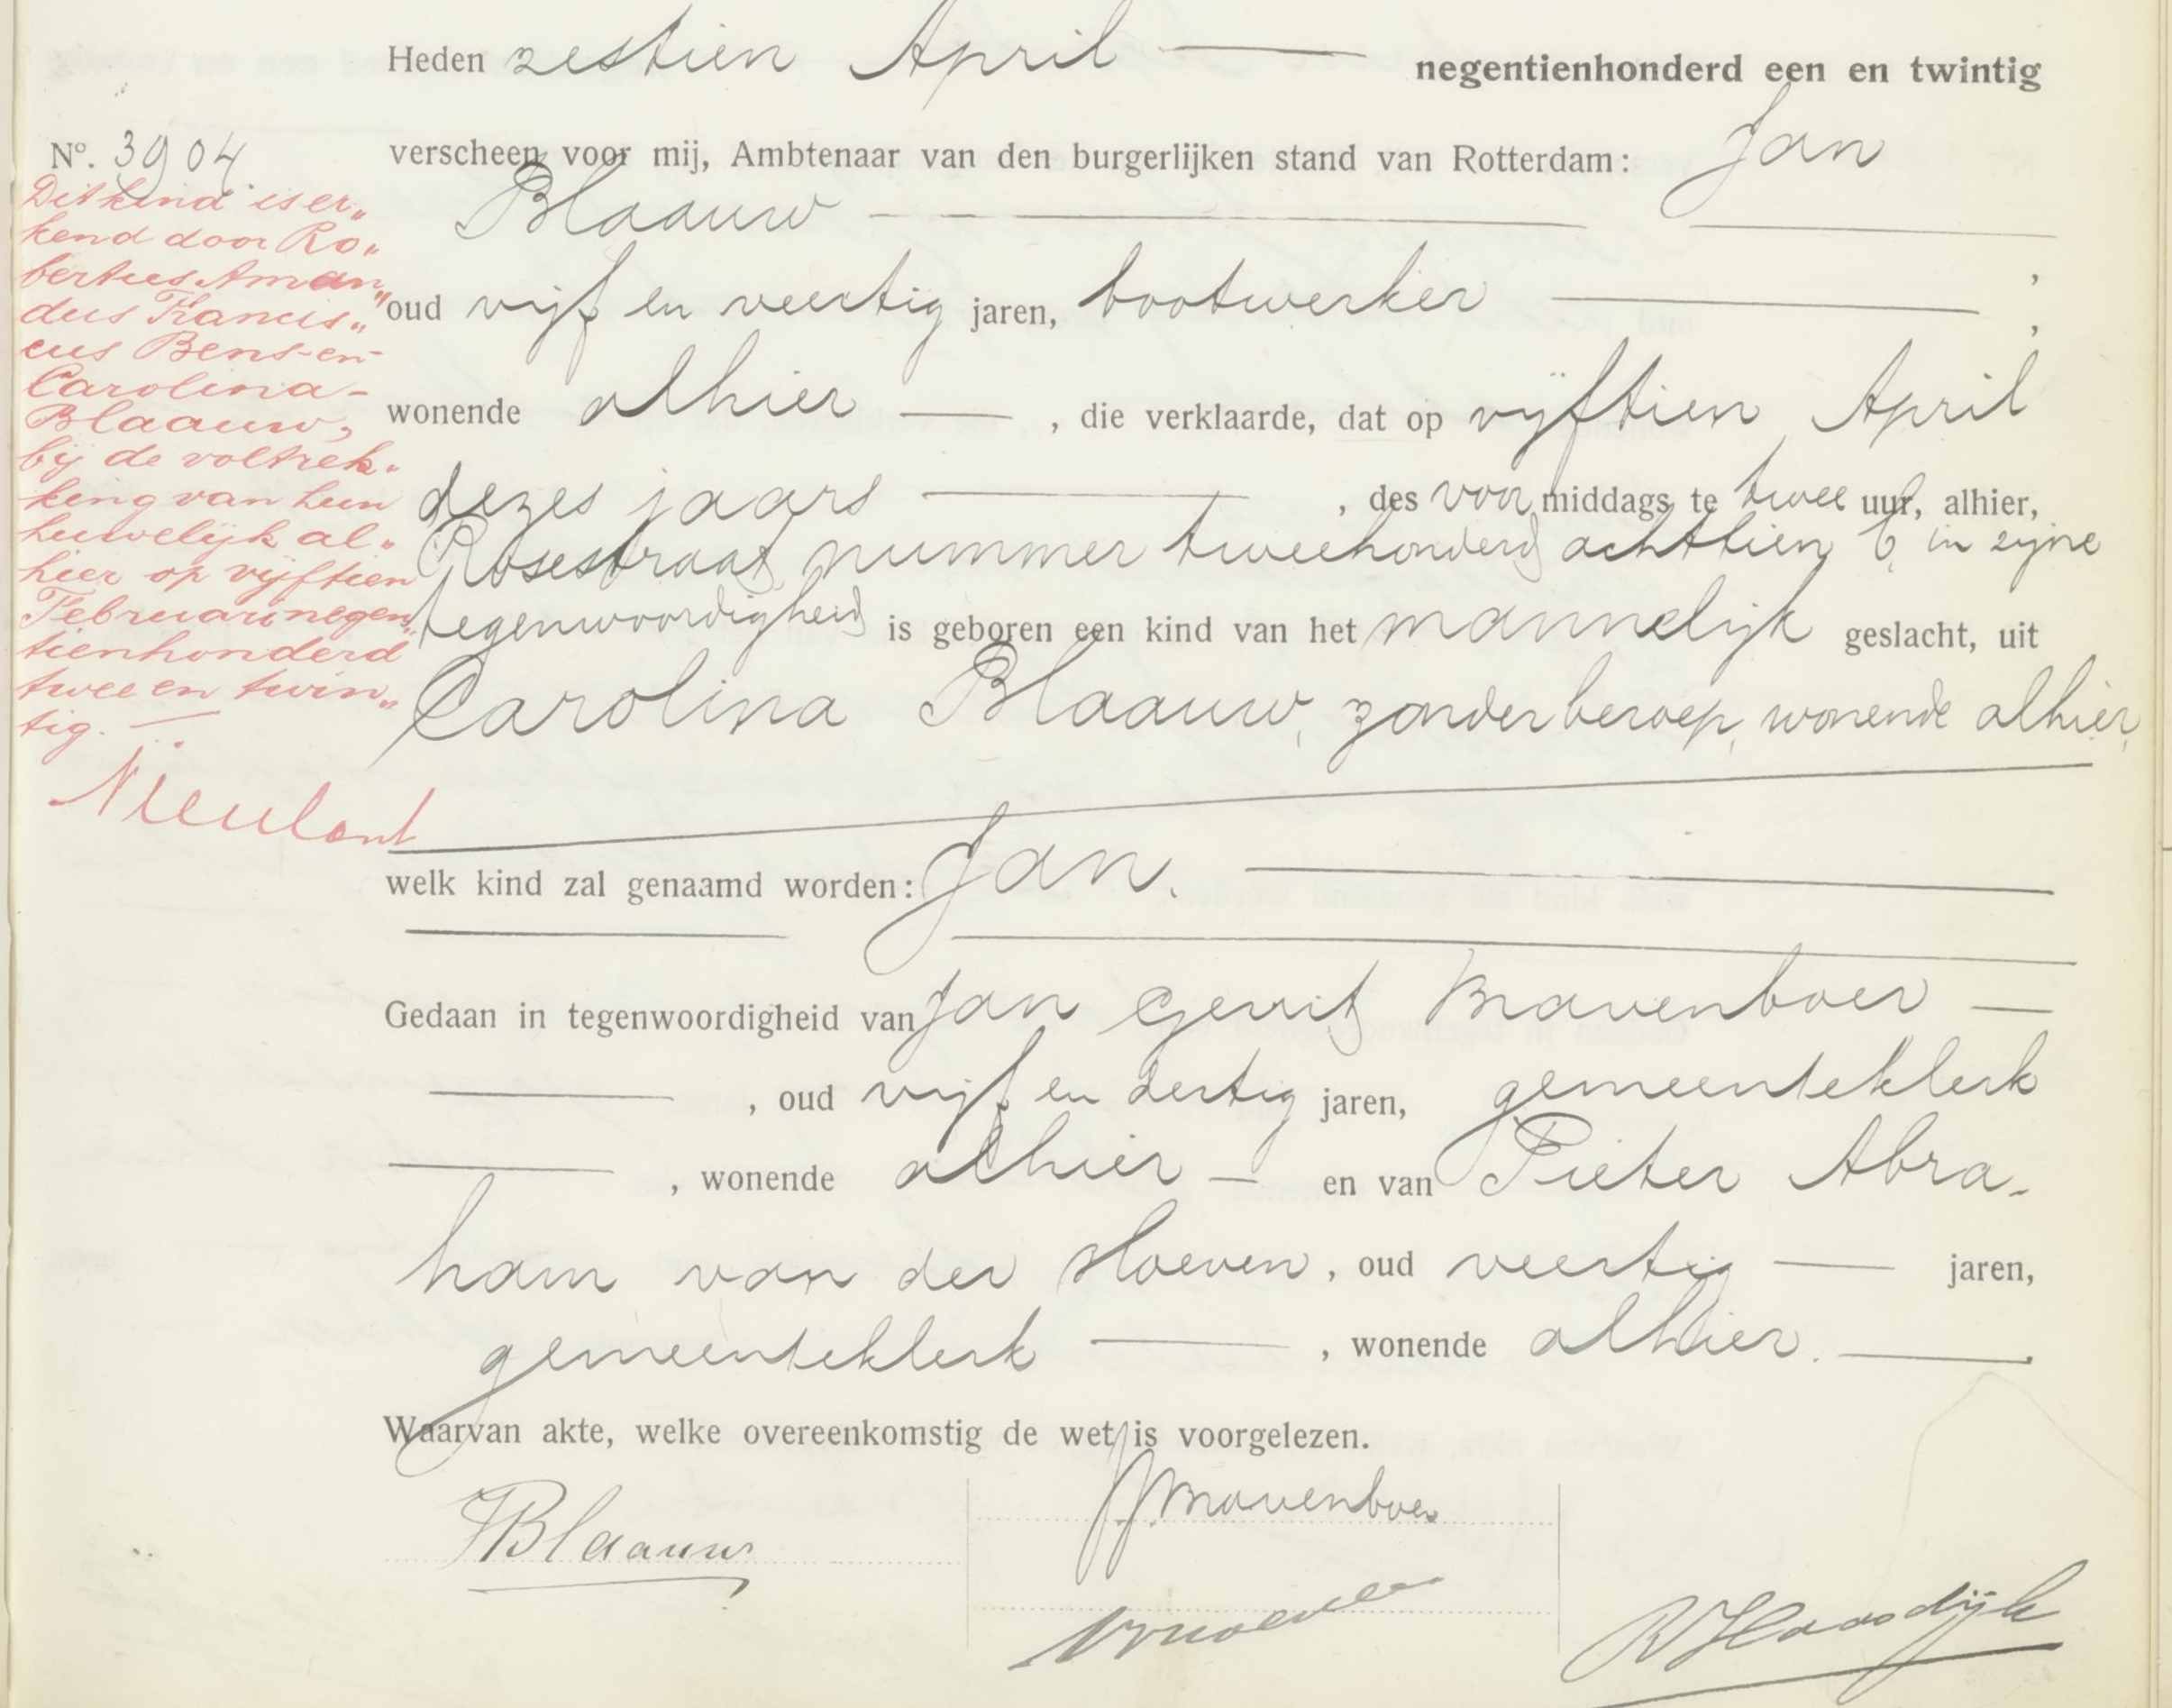 Heden zestien April negentienhonderd een en twintig
verscheen voor mij, Ambtenaar van den burgerlijken stand van Rotterdam: Jan
Blaauw
oud vijf en veertig jaren, bootwerker,
wonende alhier, die verklaarde, dat op vijftien April
dezes jaars, des voor middags te twee uur, alhier,
Rosestraat nummer tweehonderd achttien b, in zijne
tegenwoordigheid is geboren een kind van het mannelijk geslacht, uit
Carolina Blaauw, zonder beroep, wonende alhier,
welk kind zal genaamd worden: Jan.
Gedaan in tegenwoordigheid van Jan Gerrit
, oud vijf en dertig jaren, gemeenteklerk
, wonende alhier en van Pieter Abra-
ham van der Hoeven, oud veertig jaren,
gemeenteklerk, wonende alhier.
Waarvan akte, welke overeenkomstig de wet is voorgelezen.
JBlaauw
No. 3904.
Dit kind is er„
kend door Ro„
bertus Aman„
dus Francis„
cus Bens en
Carolina
Blaauw,
bij de voltrek„
king van hun
huwelijk al„
hier op vijftien
Februari negen„
tienhonderd
twee en twin„
tig.